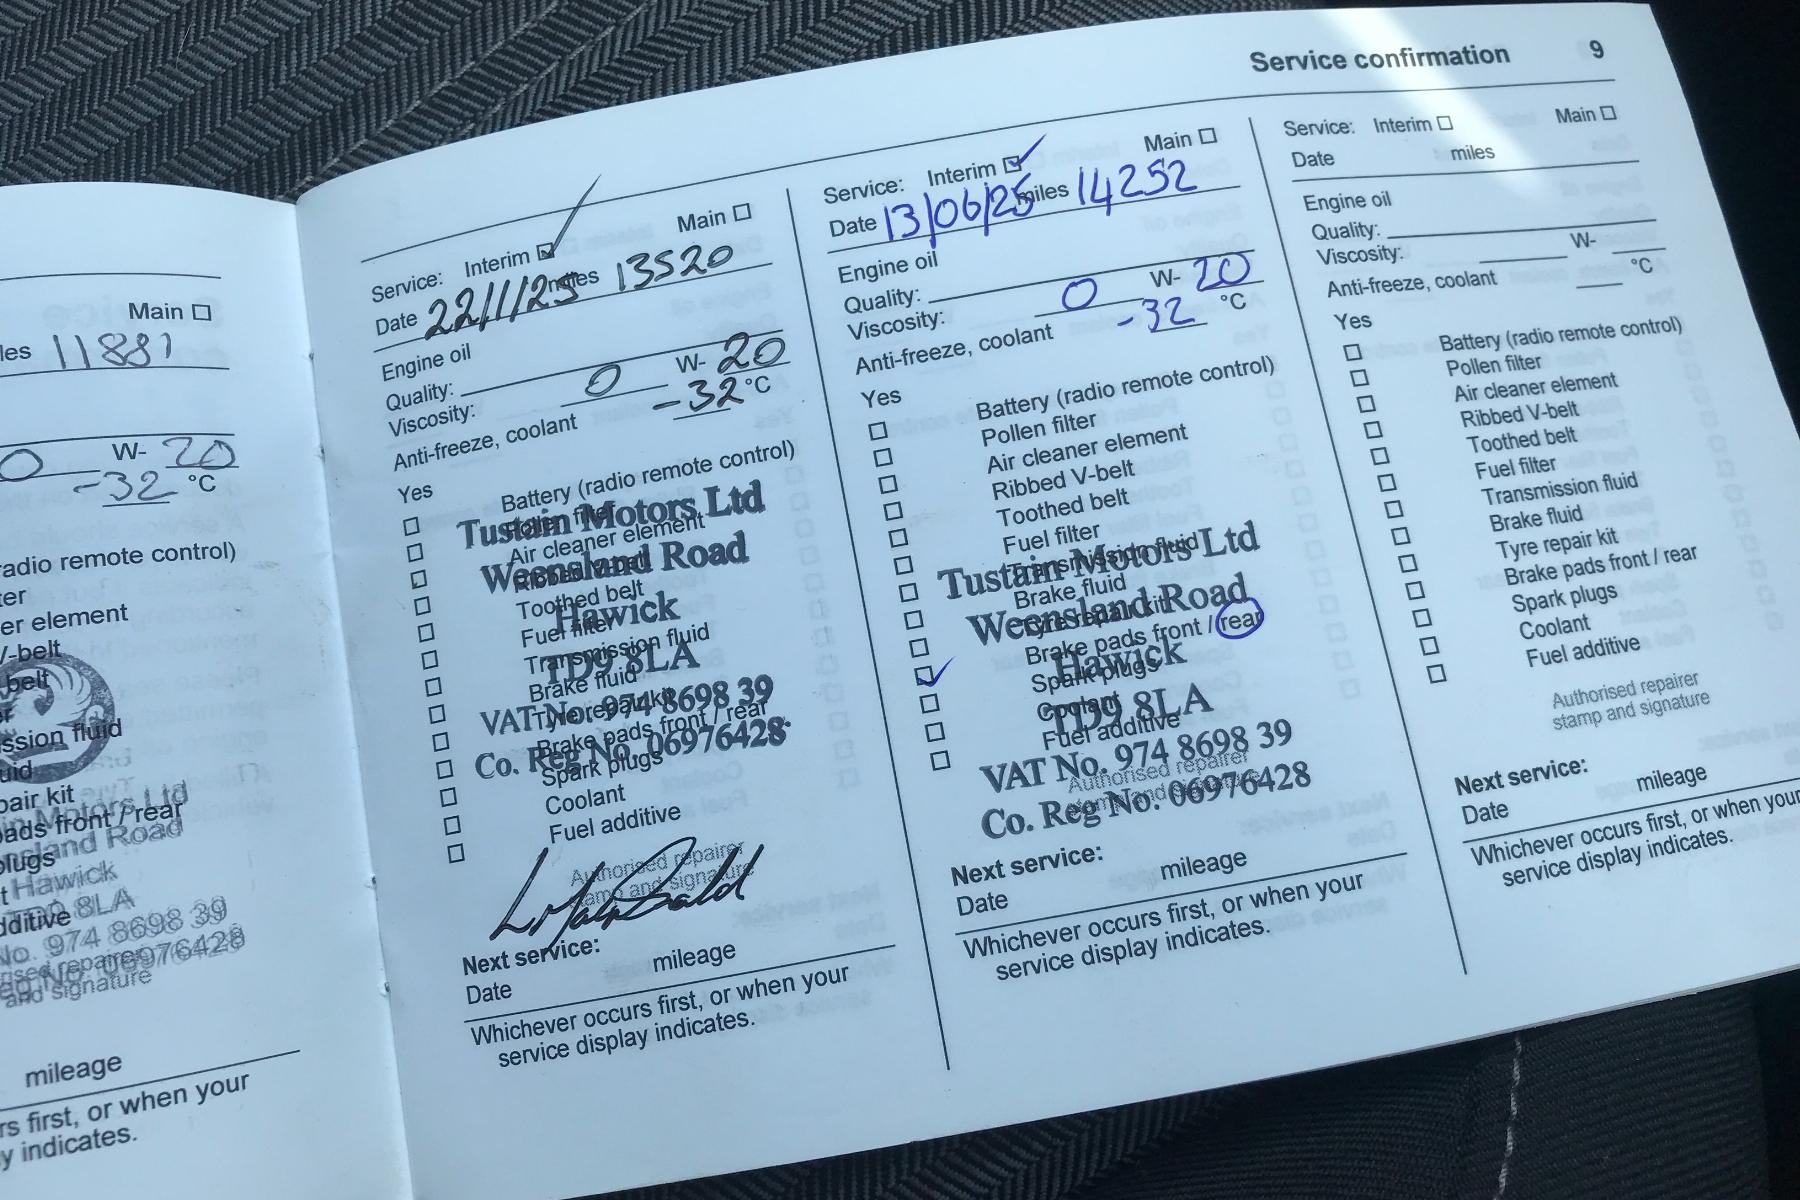 Service confirmation 9
Main
les 11881
0 W- 20
-32 °C
adio remote control)
ter
er element
V-belt
belt
r
ssion fluid
uid
pair kit
ads front / rear
plugs
t
dditive
n Motors Ltd
nsland Road
Hawick
TD9 8LA
No. 974 8698 39
eg No. 06976428
rised repairer
and signature
mileage
rs first, or when your
y indicates.
Service: Interim Main
Date 22/1/25 miles 13520
Engine oil
Quality:
Viscosity: 0 W- 20
Anti-freeze, coolant -32 °C
Yes
Battery (radio remote control)
Pollen filter
Air cleaner element
Ribbed V-belt
Toothed belt
Fuel filter
Transmission fluid
Brake fluid
Tyre repair kit
Brake pads front / rear
Spark plugs
Coolant
Fuel additive
Tustain Motors Ltd
Weensland Road
Hawick
TD9 8LA
VAT No. 974 8698 39
Co. Reg No. 06976428
Authorised repairer
stamp and signature
Next service:
Date mileage
Whichever occurs first, or when your
service display indicates.
Service: Interim Main
Date 13/06/25 miles 14252
Engine oil
Quality:
Viscosity: 0 W- 20
Anti-freeze, coolant -32 °C
Yes
Battery (radio remote control)
Pollen filter
Air cleaner element
Ribbed V-belt
Toothed belt
Fuel filter
Transmission fluid
Brake fluid
Tyre repair kit
Brake pads front / rear
Spark plugs
Coolant
Fuel additive
Tustain Motors Ltd
Weensland Road
Hawick
TD9 8LA
VAT No. 974 8698 39
Co. Reg No. 06976428
Authorised repairer
stamp and signature
Next service:
Date mileage
Whichever occurs first, or when your
service display indicates.
Service: Interim Main
Date miles
Engine oil
Quality:
Viscosity: W-
Anti-freeze, coolant °C
Yes
Battery (radio remote control)
Pollen filter
Air cleaner element
Ribbed V-belt
Toothed belt
Fuel filter
Transmission fluid
Brake fluid
Tyre repair kit
Brake pads front / rear
Spark plugs
Coolant
Fuel additive
Authorised repairer
stamp and signature
Next service:
Date mileage
Whichever occurs first, or when your
service display indicates.